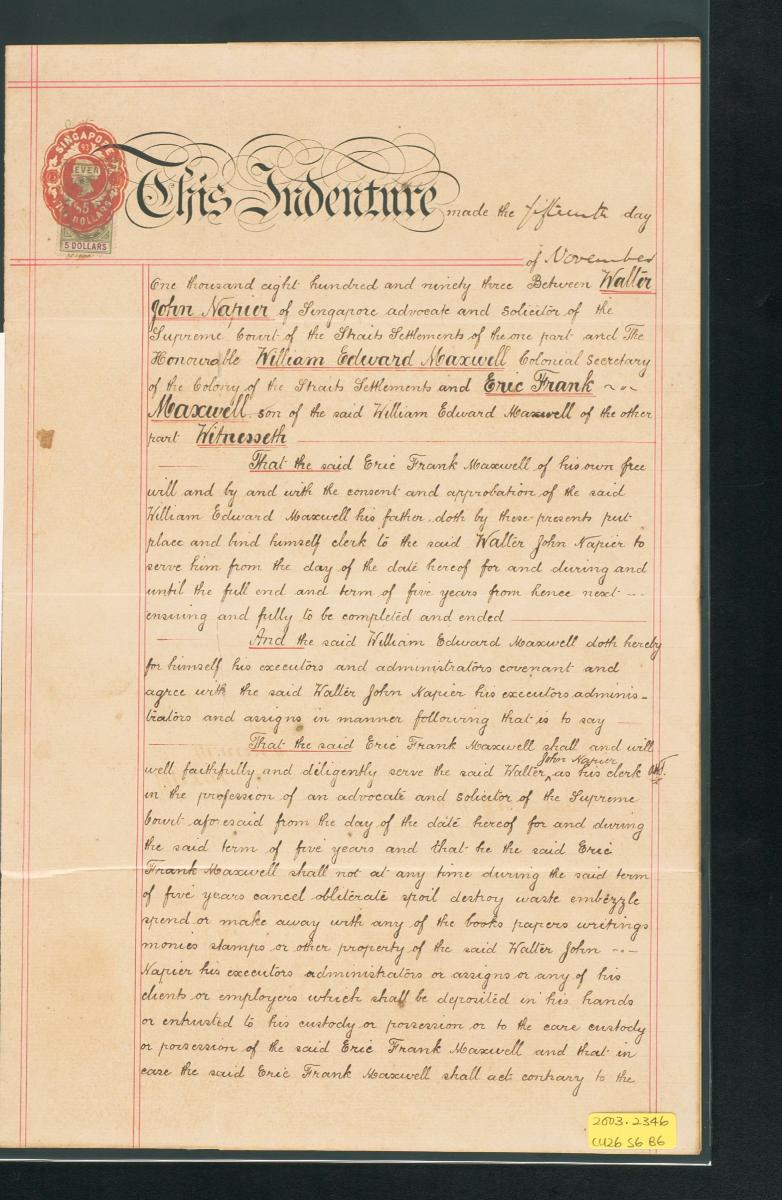 SINGAPORE
SEVEN
TEN DOLLARS
5 DOLLARS
This Indenture made the fifteenth day
of November
One thousand eight hundred and ninety three Between Walter
John Napier of Singapore advocate and solicitor of the
Supreme Court of the Straits Settlements of the one part and The
Honourable William Edward Maxwell Colonial Secretary
of the Colony of the Straits Settlements and Eric Frank
Maxwell son of the said William Edward Maxwell of the other
part Witnesseth
That the said Eric Frank Maxwell of his own free
will and by and with the consent and approbation of the said
William Edward Maxwell his father doth by these presents put
place and bind himself clerk to the said Walter John Napier to
serve him from the day of the date hereof for and during and
until the full end and term of five years from hence next
ensuing and fully to be completed and ended
And the said William Edward Maxwell doth hereby
for himself his executors and administrators covenant and
agree with the said Walter John Napier his executors adminis-
trators and assigns in manner following that is to say
That the said Eric Frank Maxwell shall and will
John Napier
well faithfully and diligently serve the said Walter as his clerk
in the profession of an advocate and solicitor of the Supreme
Court aforesaid from the day of the date hereof for and during
the said term of five years and that he the said Eric
Frank Maxwell shall not at any time during the said term
of five years cancel obliterate spoil destroy waste embezzle
spend or make away with any of the books papers writings
monies stamps or other property of the said Walter John
Napier his executors administrators or assigns or any of his
clients or employers which shall be deposited in his hands
or entrusted to his custody or possession or to the care custody
or possession of the said Eric Frank Maxwell and that in
case the said Eric Frank Maxwell shall act contrary to the
2003.2346
CU26 S6 B6